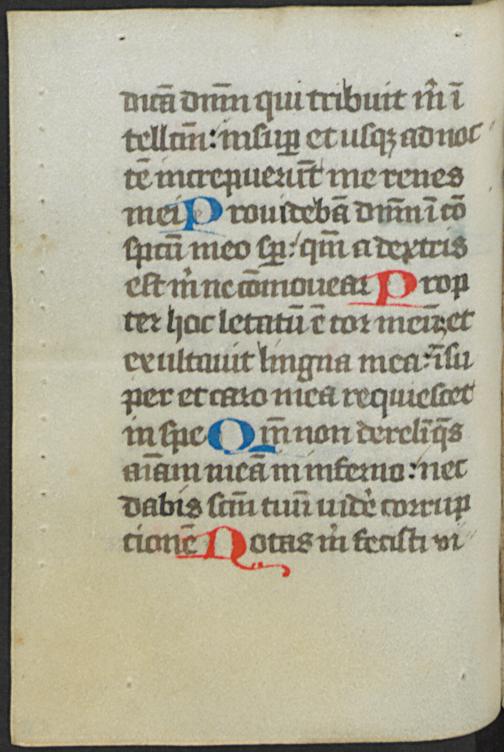 dicā dnm̄ qui tribuit m̄ ī
tellcm̄: insup̄ et usqꝫ ad noc
tē increpuerūt me renes
mei Providebā dnm̄ ī cō
spctū meo sp̄: qm̄ a dextris
est m̄ ne cōmovear Prop
ter hoc letatū ē cor meū, et
exultavit lingua mea: īsu
per et caro mea requiescet
in spe Qm̄ non derelīqs
aīam meā in inferno: nec
dabis scm̄ tuū vidē corrup
cionē Notas m̄ fecisti vi